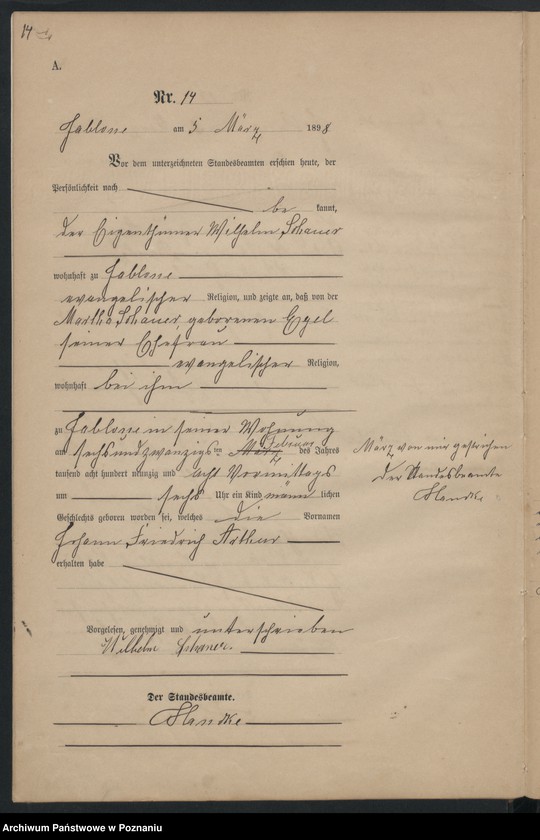 14
A.
Nr. 14
Jablone am 5 März 1898
Vor dem unterzeichneten Standesbeamten erschien heute, der
Persönlichkeit nach
be kannt,
der Eigenthümer Wilhelm Schauer
wohnhaft zu Jablone
evangelischer Religion, und zeigte an, daß von der
Martha Schauer, geborenen Egel
seiner Ehefrau
evangelischer Religion,
wohnhaft bei ihm
zu Jablone in seiner Wohnung
Februar
am sechsundzwanzigsten März des Jahres
tausend acht hundert neunzig und acht Vormittags
um sechs Uhr ein Kind männlichen
Geschlechts geboren worden sei, welches die Vornamen
Johann Friedrich Arthur
erhalten habe
März von mir gestrichen
Der Standesbeamte
Handke
Vorgelesen, genehmigt und unterschrieben
Wilhelm Schauer.
Der Standesbeamte.
Handke
Archiwum Państwowe w Poznaniu